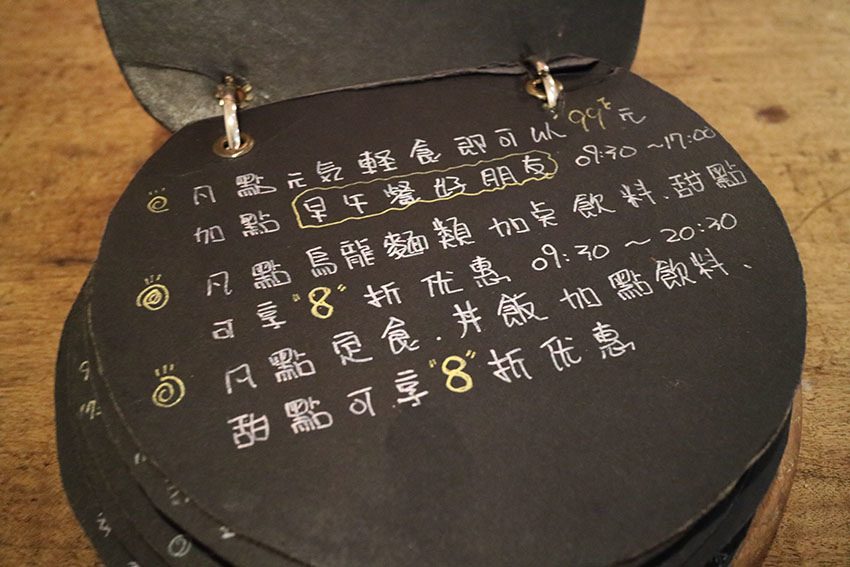 凡點元気輕食即可以"99"元
加點早午餐好朋友 09:30～17:00
凡點烏龍麵類加点飲料、甜點
可享"8"折优惠 09:30～20:30
凡點定食.丼飯加點飲料、
甜點可享"8"折优惠